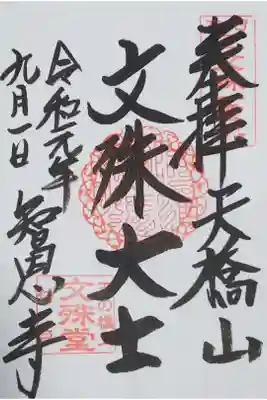 奉拝 天橋山
文殊大士
令和元年
九月一日
智恩寺
文殊堂